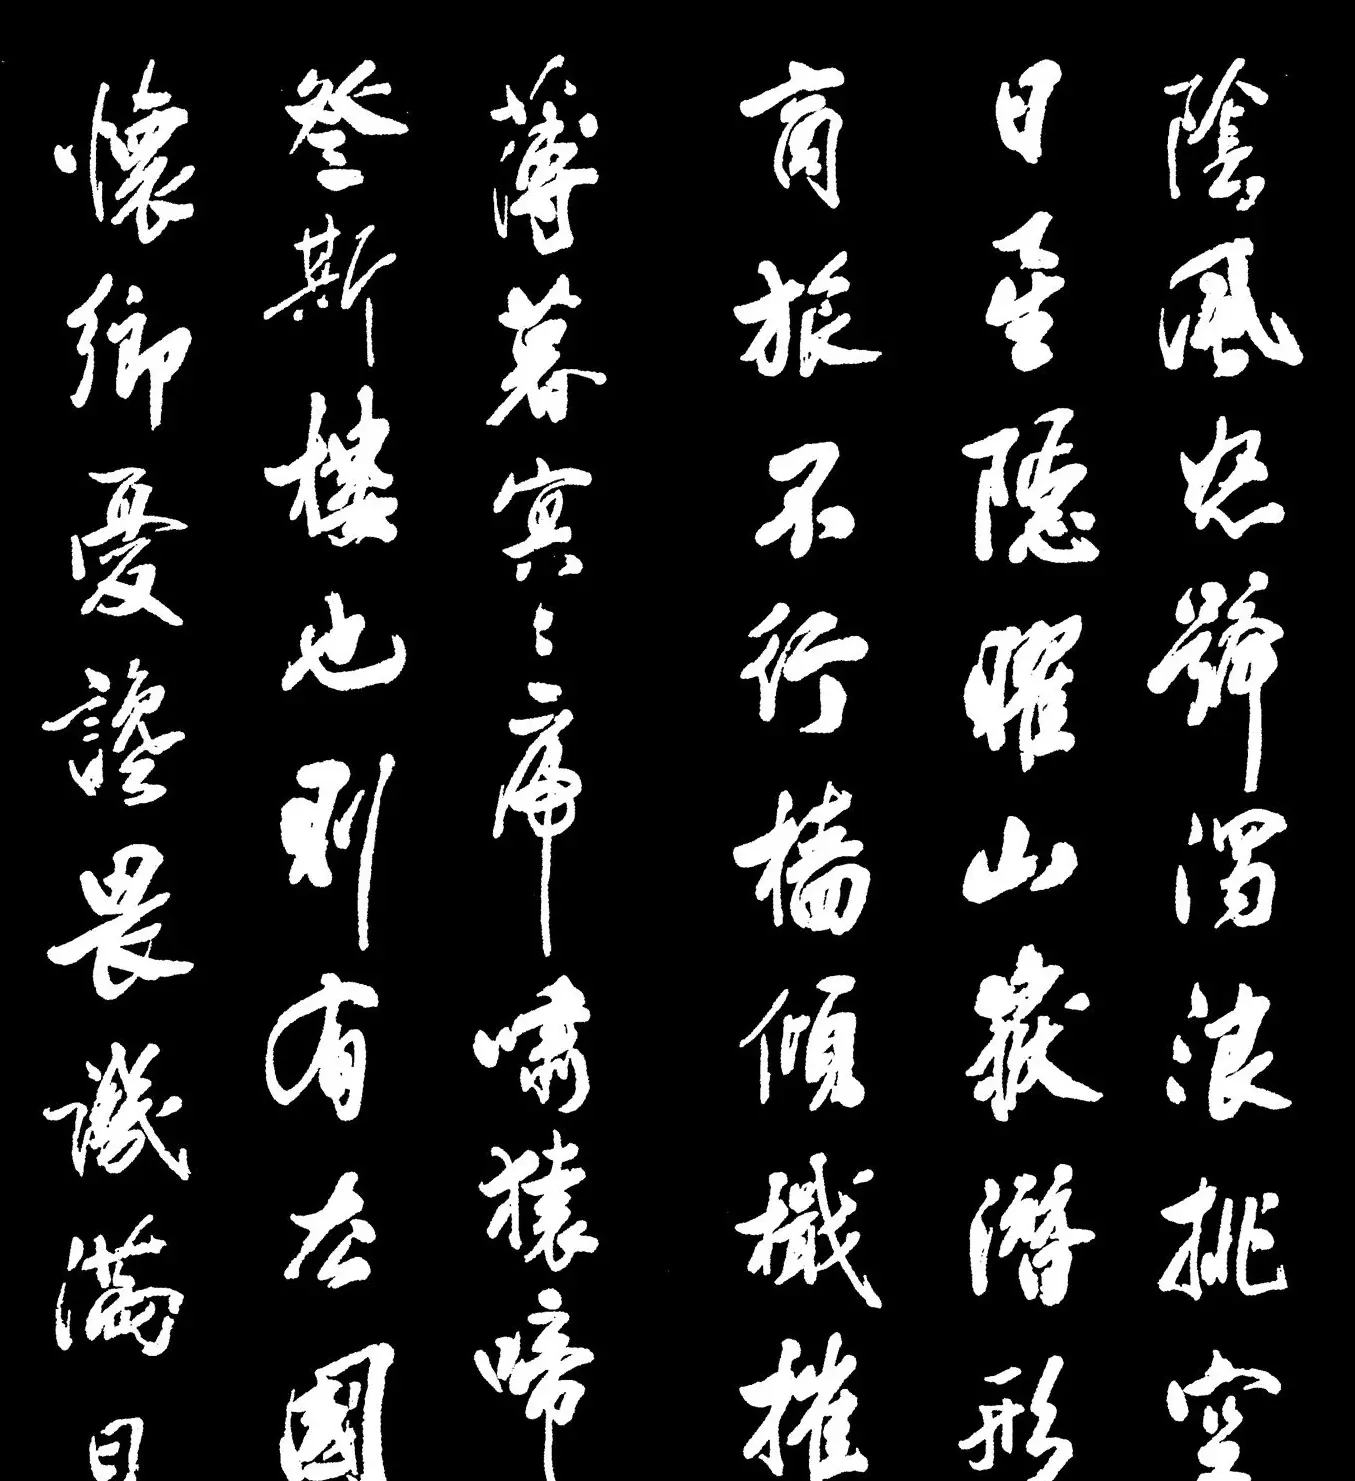 陰風怒號濁浪排空
日星隱曜山嶽潛形
商旅不行檣傾檝摧
薄暮冥〻虎嘯猿啼
登斯樓也則有去國
懷鄉憂讒畏譏滿目